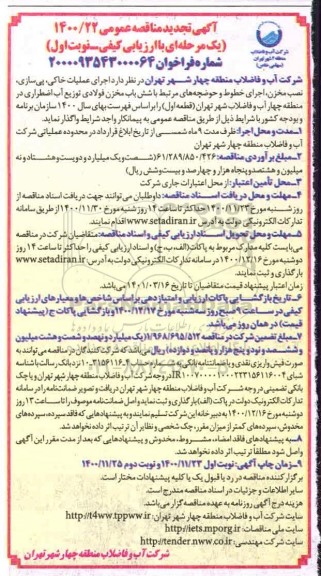 آگهی تجدید مناقصه عمومی ۱۴۰۰/۲۲
(یک مرحله‌ای با ارزیابی کیفی-نوبت اول)
شماره فراخوان ۲۰۰۰۰۹۳۵۴۳۰۰۰۰۶۴
شرکت آب و فاضلاب
منطقه ۴ شهر تهران
(سهامی خاص)
شرکت آب و فاضلاب منطقه چهار شهر تهران در نظر دارد اجرای عملیات خاکی، پی‌سازی،
نصب مخزن، اجرای خطوط و حوضچه‌های مرتبط با شش باب مخزن فولادی توزیع آب اضطراری در
منطقه چهار آب و فاضلاب شهر تهران (قطعه اول) را براساس فهرست بهای سال ۱۴۰۰ سازمان برنامه
و بودجه کشور با شرایط ذیل از طریق مناقصه عمومی به پیمانکار واجد شرایط واگذار نماید.
۱-مدت و محل اجرا: ظرف مدت ۹ ماه شمسی از تاریخ ابلاغ قرارداد در محدوده عملیاتی شرکت
آب و فاضلاب منطقه چهار شهر تهران
۲-مبلغ برآوردی مناقصه: ۶۱/۲۸۹/۸۵۰/۴۲۶ (شصت و یک میلیارد و دویست و هشتاد و نه
میلیون و هشتصد و پنجاه هزار و چهارصد و بیست و شش ریال)
۳-محل تأمین اعتبار: از محل اعتبارات جاری شرکت
۴-مهلت و محل دریافت اسناد مناقصه: داوطلبان می‌توانند جهت دریافت اسناد مناقصه از
روز شنبه مورخ ۱۴۰۰/۱۱/۲۳ حداکثر تا ساعت ۱۴ روز شنبه مورخ ۱۴۰۰/۱۱/۳۰ از طریق سامانه
تدارکات الکترونیکی دولت به آدرس www.setadiran.ir اقدام نمایند.
۵-مهلت و محل تحویل اسناد ارزیابی کیفی و اسناد مناقصه: متقاضیان شرکت در مناقصه
می‌بایست کلیه مدارک مربوط به پاکات (الف، ب، ج) و اسناد ارزیابی کیفی را حداکثر تا ساعت ۱۴ روز
دوشنبه مورخ ۱۴۰۰/۱۲/۱۶ در سامانه تدارکات الکترونیکی دولت به آدرس: www.setadiran.ir
بارگذاری و ثبت نمایند.
زمان اعتبار پیشنهاد قیمت متقاضیان تا تاریخ ۱۴۰۱/۰۳/۱۶ می‌باشد.
۶-تاریخ بازگشایی پاکات ارزیابی و امتیازدهی براساس شاخص‌ها و معیارهای ارزیابی
کیفی در ساعت ۹ صبح روز سه‌شنبه مورخ ۱۴۰۰/۱۲/۱۷ و بازگشایی پاکات ج (پیشنهاد
قیمت) در همان روز می‌باشد.
۷-مبلغ تضمین شرکت در مناقصه ۱/۹۶۸/۶۹۵/۵۱۲ (یک میلیارد و نهصد و شصت و هشت میلیون
و ششصد و نود و پنج هزار و پانصد و دوازده) ریال می‌باشد که شرکت‌کنندگان در مناقصه می‌توانند به
بانکی تضمینی در وجه شرکت آب و فاضلاب منطقه چهار شهر تهران دریافت و تصویر ضمانت‌نامه را در سامانه
تدارکات الکترونیک دولت در پاکت (الف) بارگذاری و ثبت نماید و اصل ضمانت‌نامه موصوف را تا ساعت ۱۳ روز
دوشنبه مورخ ۱۴۰۰/۱۲/۱۶ به دبیرخانه این شرکت تسلیم نمایند و به پیشنهادهایی که فاقد سپرده، سپرده‌های
مخدوش، سپرده‌های کمتر از میزان مقرر، چک شخصی و نظایر آن ترتیب اثر داده نخواهد شد.
۸-به پیشنهادهای فاقد امضاء، مشروط، مخدوش و پیشنهادهایی که بعد از مدت مقرر این آگهی
واصل شود مطلقاً ترتیب اثر داده نخواهد شد.
۹-زمان چاپ آگهی: نوبت اول ۱۴۰۰/۱۱/۲۳ و نوبت دوم ۱۴۰۰/۱۱/۲۵
برگزارکننده مناقصه در رد یا قبول یک یا کلیه پیشنهادات مختار است.
سایر اطلاعات و جزئیات در اسناد مناقصه مندرج است.
هزینه درج آگهی روزنامه به عهده مناقصه‌گزار می‌باشد.
سایت شرکت آب و فاضلاب منطقه چهار شهر تهران: http://t4ww.tppww.ir
سایت ملی مناقصات: http://iets.mporg.ir
سایت شرکت مهندسی: http://tender.nww.co.ir
شرکت آب و فاضلاب منطقه چهار شهر تهران